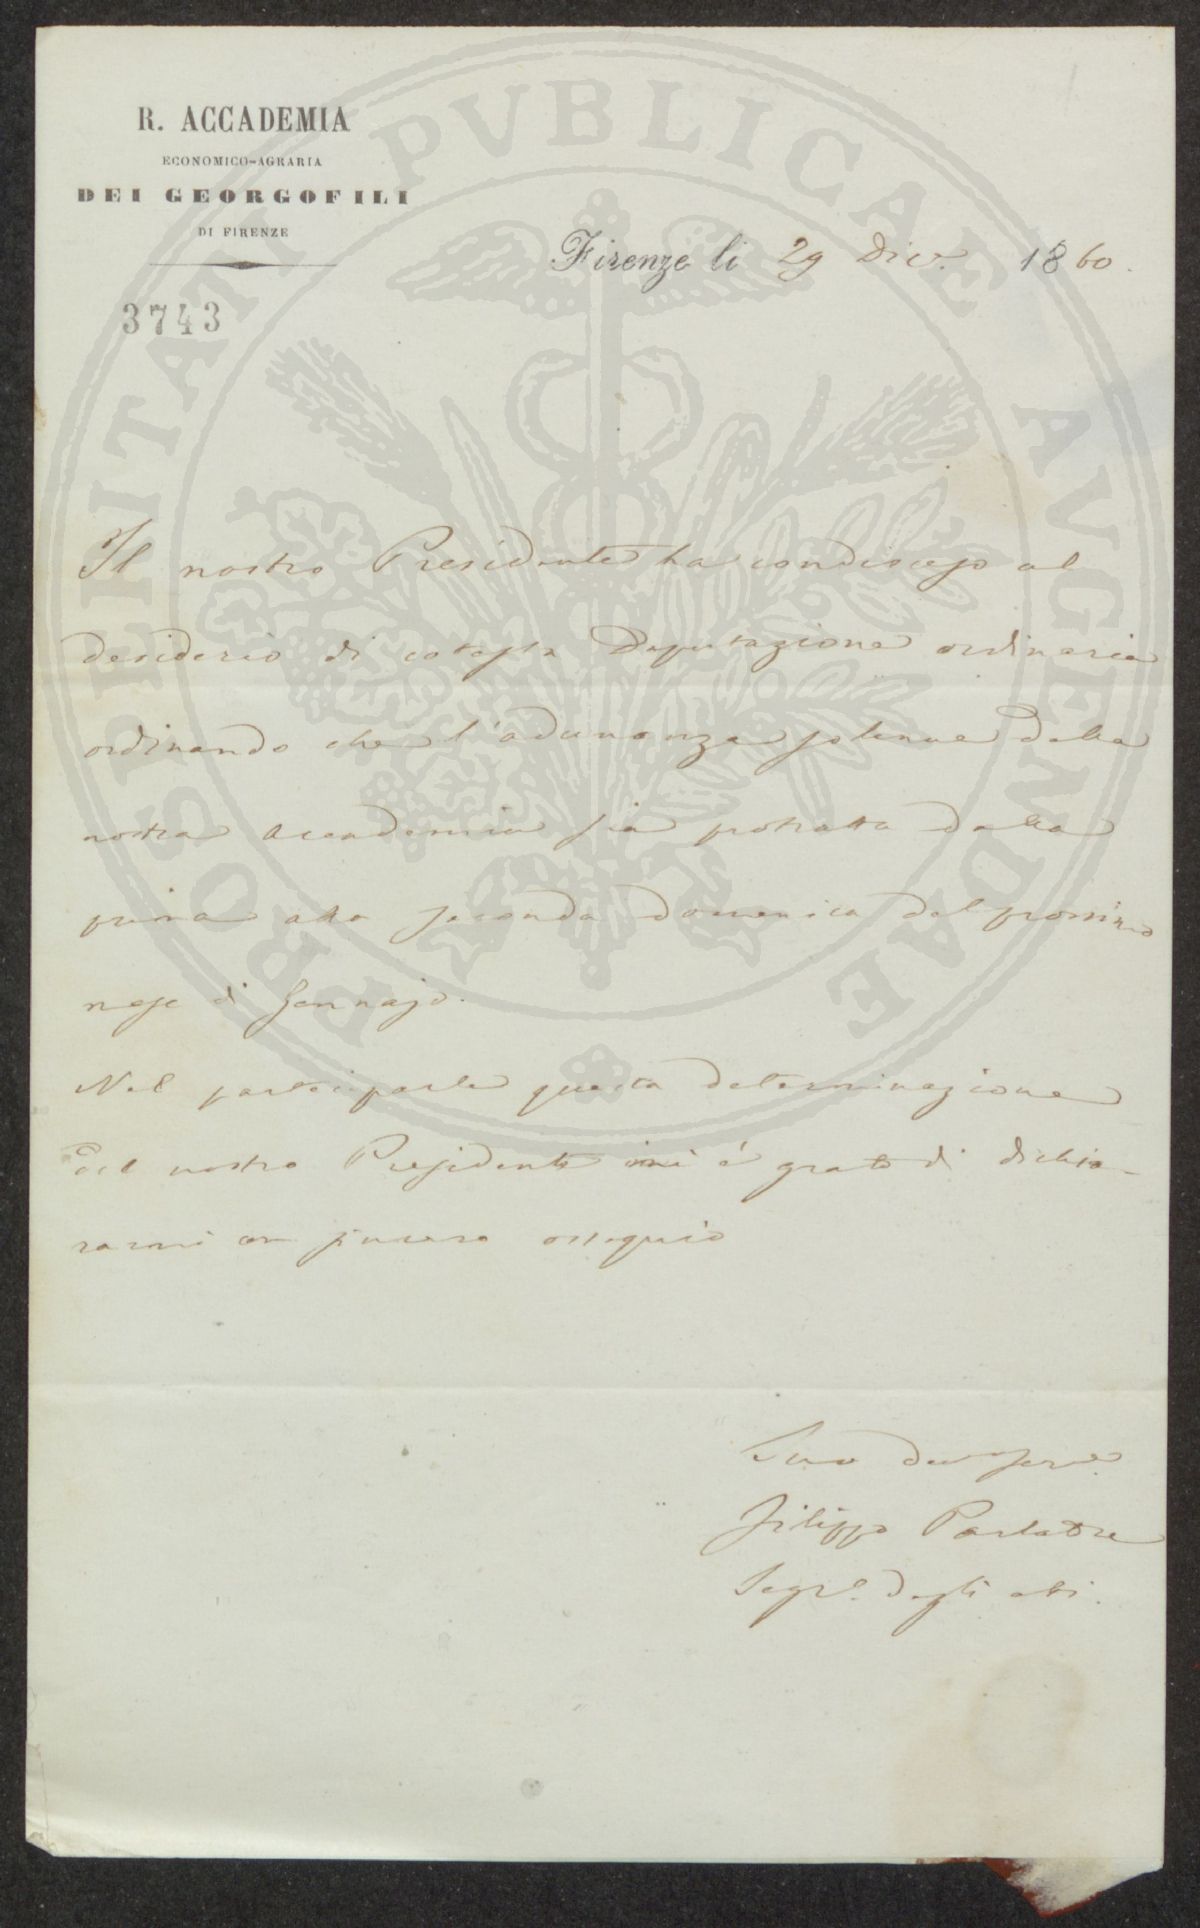 R. ACCADEMIA
ECONOMICO-AGRARIA
DEI GEORGOFILI
DI FIRENZE
Firenze li 29 Dice. 1860.
3743
PROSPERITATI PVBLICAE AVGENDAE
Il nostro Presidente ha condisceso al
desiderio di cotesta Deputazione ordinaria
ordinando che l'adunanza solenne della
nostra Accademia sia protratta dalla
prima alla seconda domenica del prossimo
mese di Gennajo.
Nel parteciparle questa determinazione
del nostro Presidente mi è grato di dichia-
rarmi con sincero ossequio
Suo dev. serve
Filippo Parlatore
Segr. degli atti.